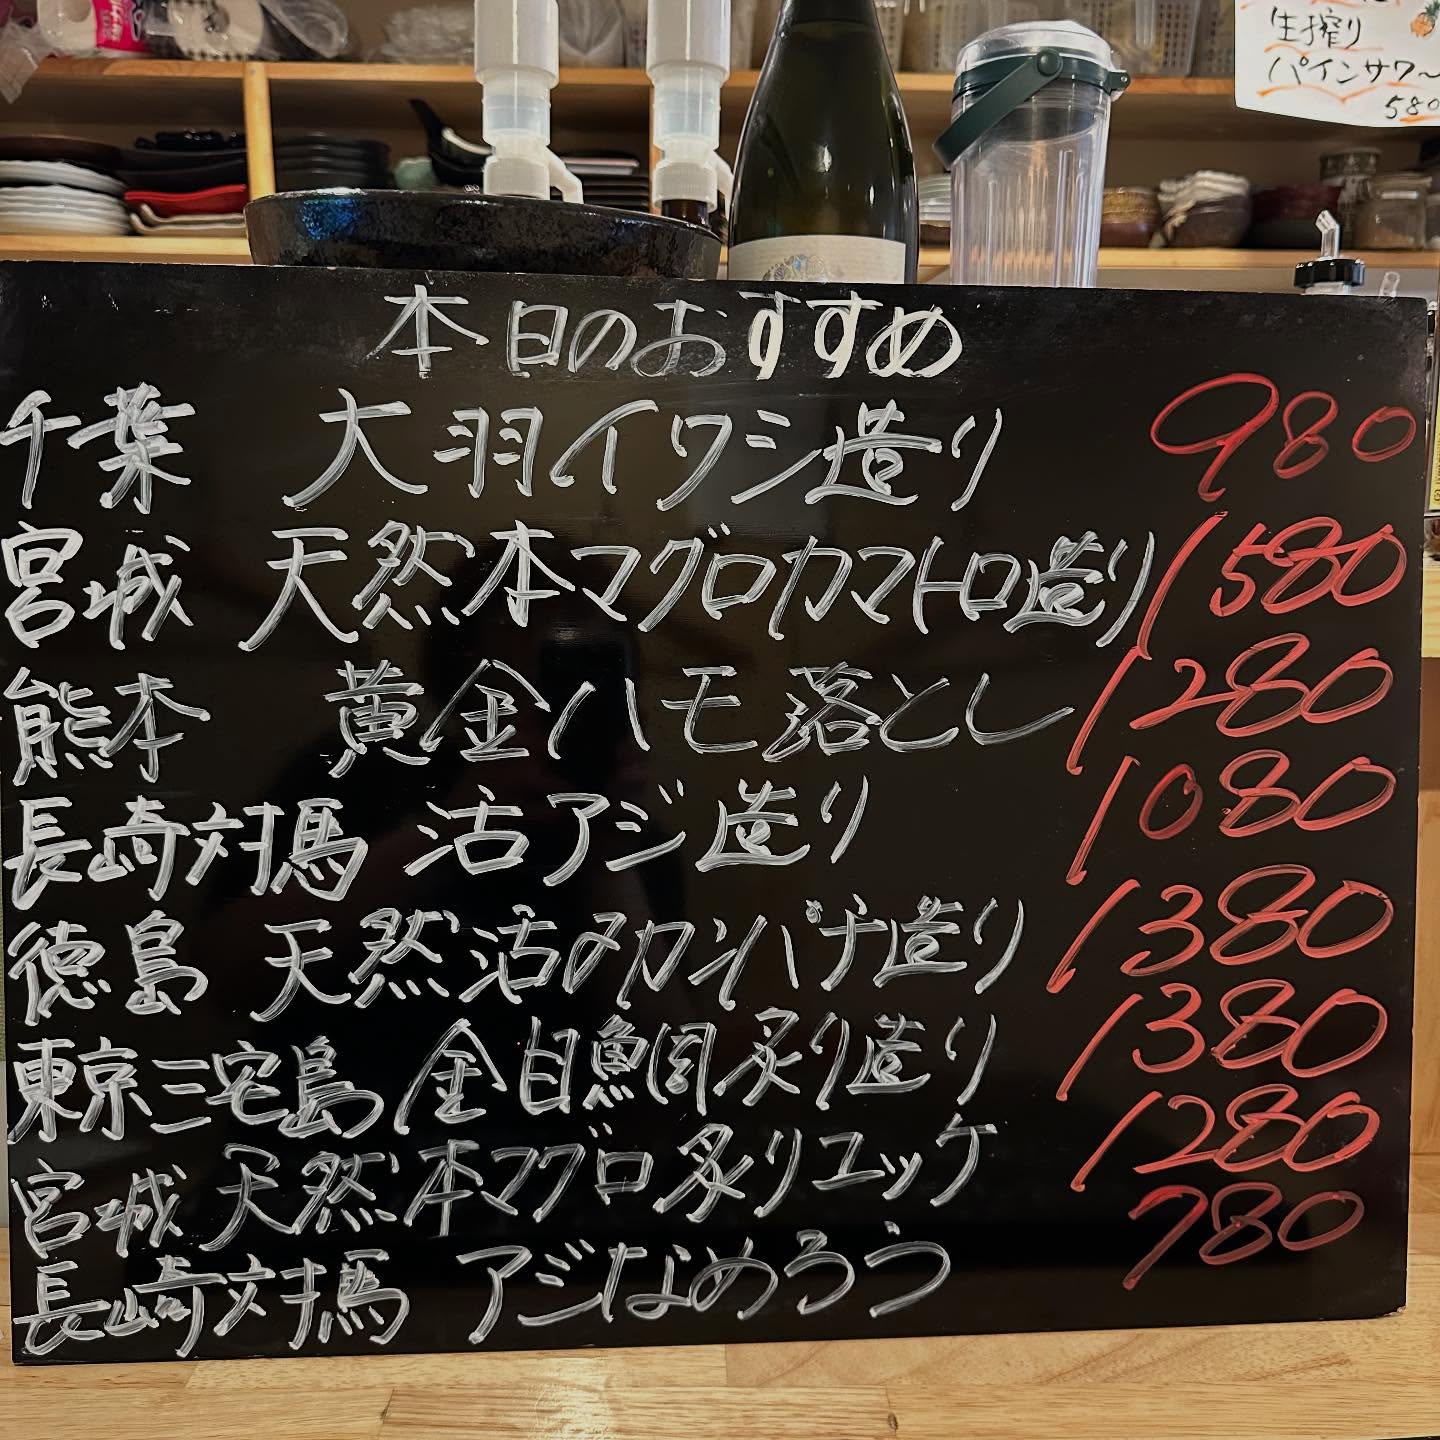 生搾り
パインサワ～
580
本日のおすすめ
千葉 大羽イワシ造り 980
宮城 天然本マグロカマトロ造り 1580
熊本 黄金ハモ落とし 1280
長崎対馬 活アジ造り 1080
徳島 天然活〆カンパチ造り 1380
東京三宅島 金目鯛炙り造り 1380
宮城 天然本マグロ炙りユッケ 1280
長崎対馬 アジなめろう 780